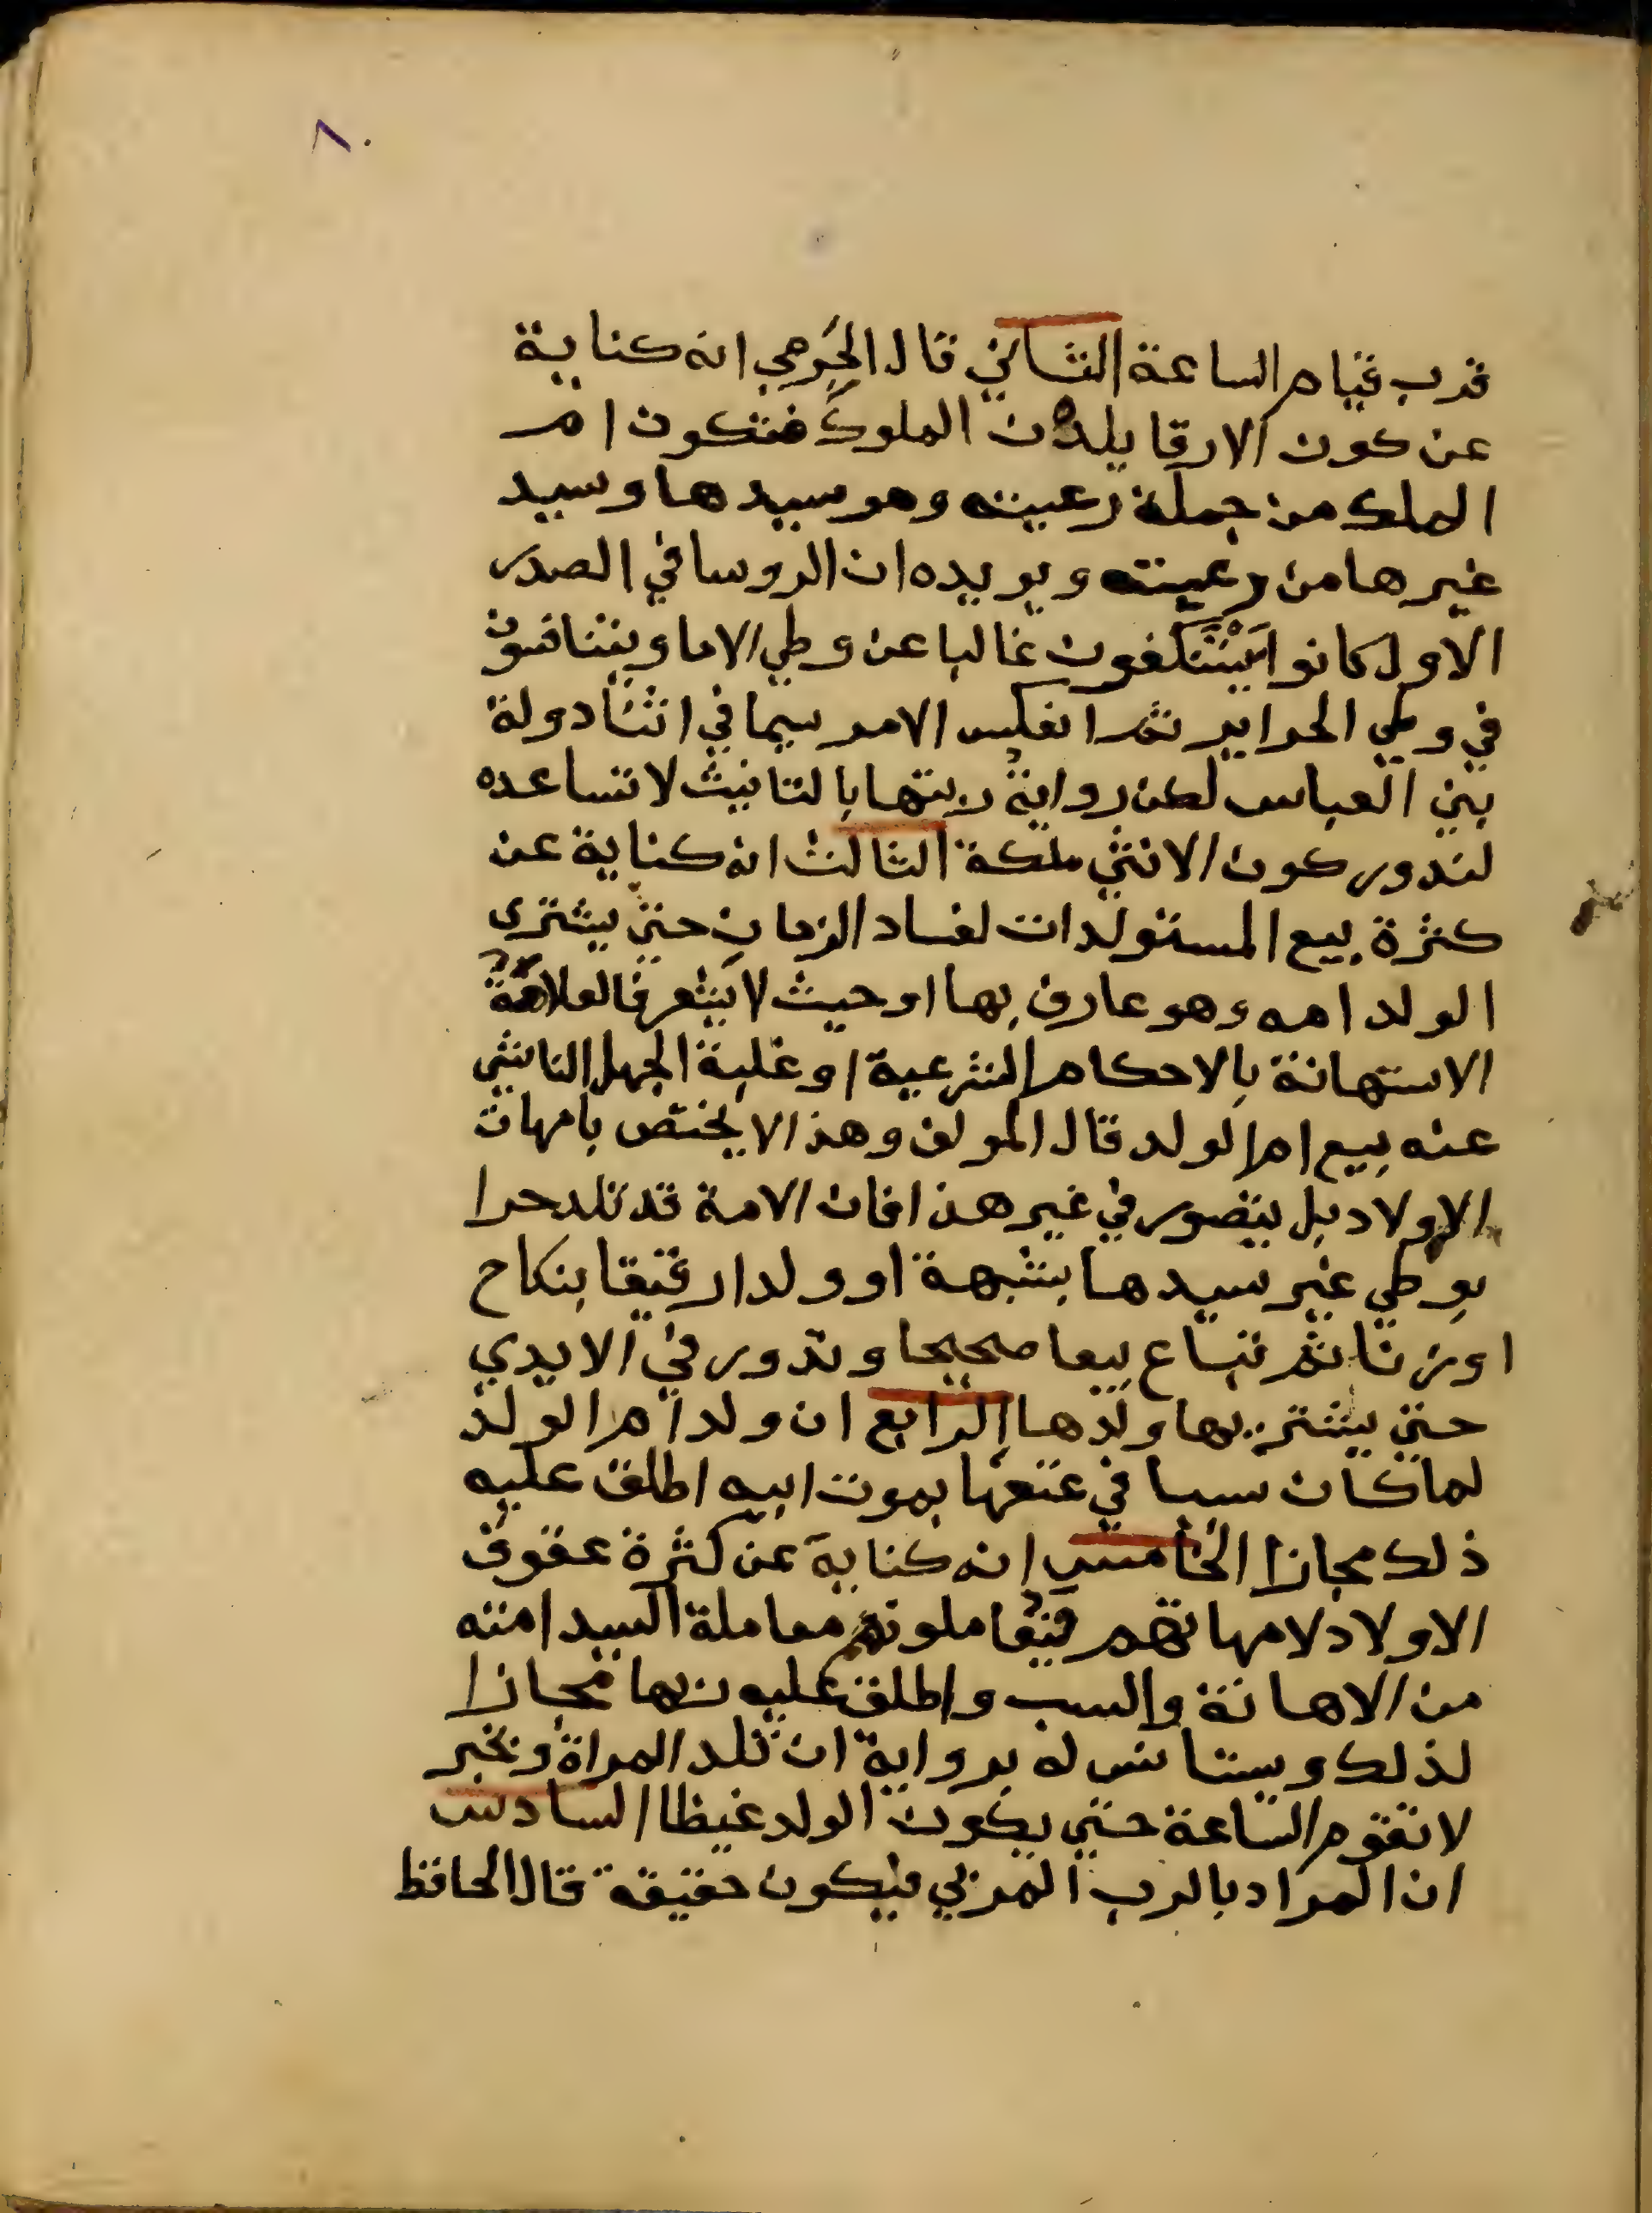 ٨٠
قرب قيام الساعة الثاني قال الحَرمي انه كناية
عن كون الارقا يلدن الملوك فتكون ام
الملك من جملة رعيته وهو سيدها وسيد
غيرها من رعيته ويويده ان الروسا في الصدر
الاول كانوا يَسْتَنْكفون غالبا عن وطي الاما ويتنافسون
في وطي الحراير ثم انعكس الامر سيما في اثنا دولة
بني العباس لكن رواية ربتها بالتانيث لا تساعده
لندور كون الانثي ملكة الثالث انه كناية عن
كثرة بيع المستولدات لفساد الزمان حتي يشتري
الولد امه وهو عارف بها او حيث لا يَشعر فالعلامَةُ
الاستهانة بالاحكام الشرعية او غلبة الجهل الناشي
عنه بيع ام الولد قال المولف وهذا لا يختص بامهات
الاولاد بل يتصور في غير هذا فان الامة قد تلد حرا
بوطي غير سيدها بشبهة او ولدا رقيقا بنكاح
او زنا ثم تباع بيعا صحيحا وتدور في الايدي
حتي يشتريها ولدها الرابع ان ولد ام الولد
لما كان سببا في عتقها بموت ابيه اطلق عليه
ذلك مجازا الخامس انه كناية عن كثرة عقوق
الاولاد لامهاتهم فيُعاملونهم معاملة السيد امته
من الاهانة والسب واطلق عليه ربها مجازا
لذلك ويستانس له برواية ان تلد المراة وبخبر
لا تقوم الساعة حتي يكون الولد غيظا السادس
ان المراد بالرب المربي فيكون حقيقة قال الحافظ